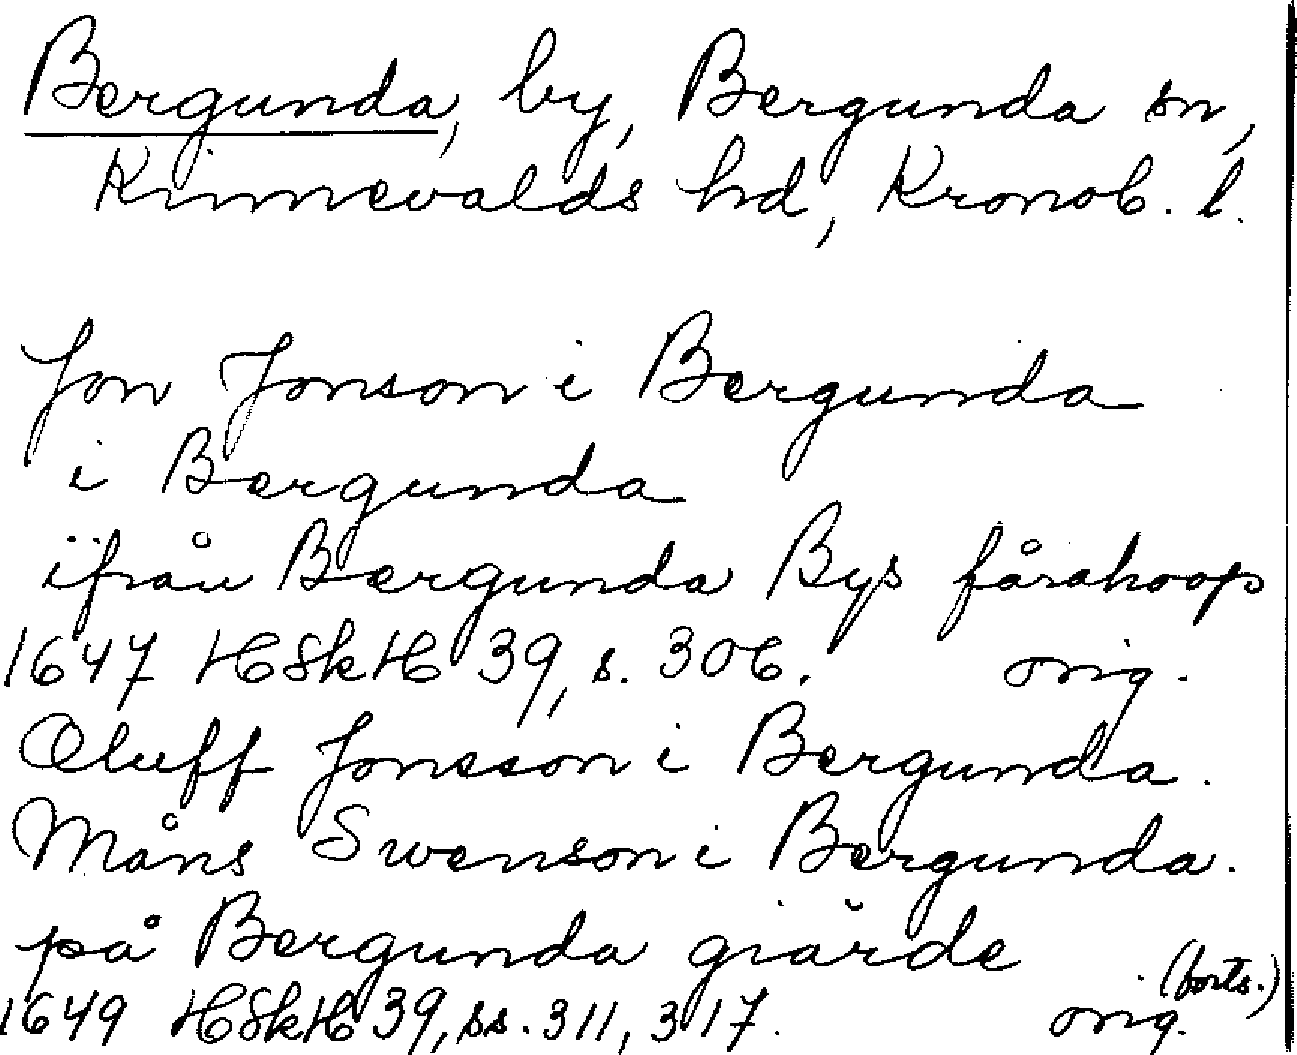 Bergunda, by, Bergunda sn,
Kinnevalds hd, Kronob. l.
Jon Jonson i Bergunda
i Bergunda
ifrån Bergunda Bys fårahoop
1647 HSkH 39, s. 306. orig.
Oluff Jonsson i Bergunda.
Måns Swenson i Bergunda.
på Bergunda giärde
(forts.)
1649 HSkH 39, ss. 311, 317. orig.